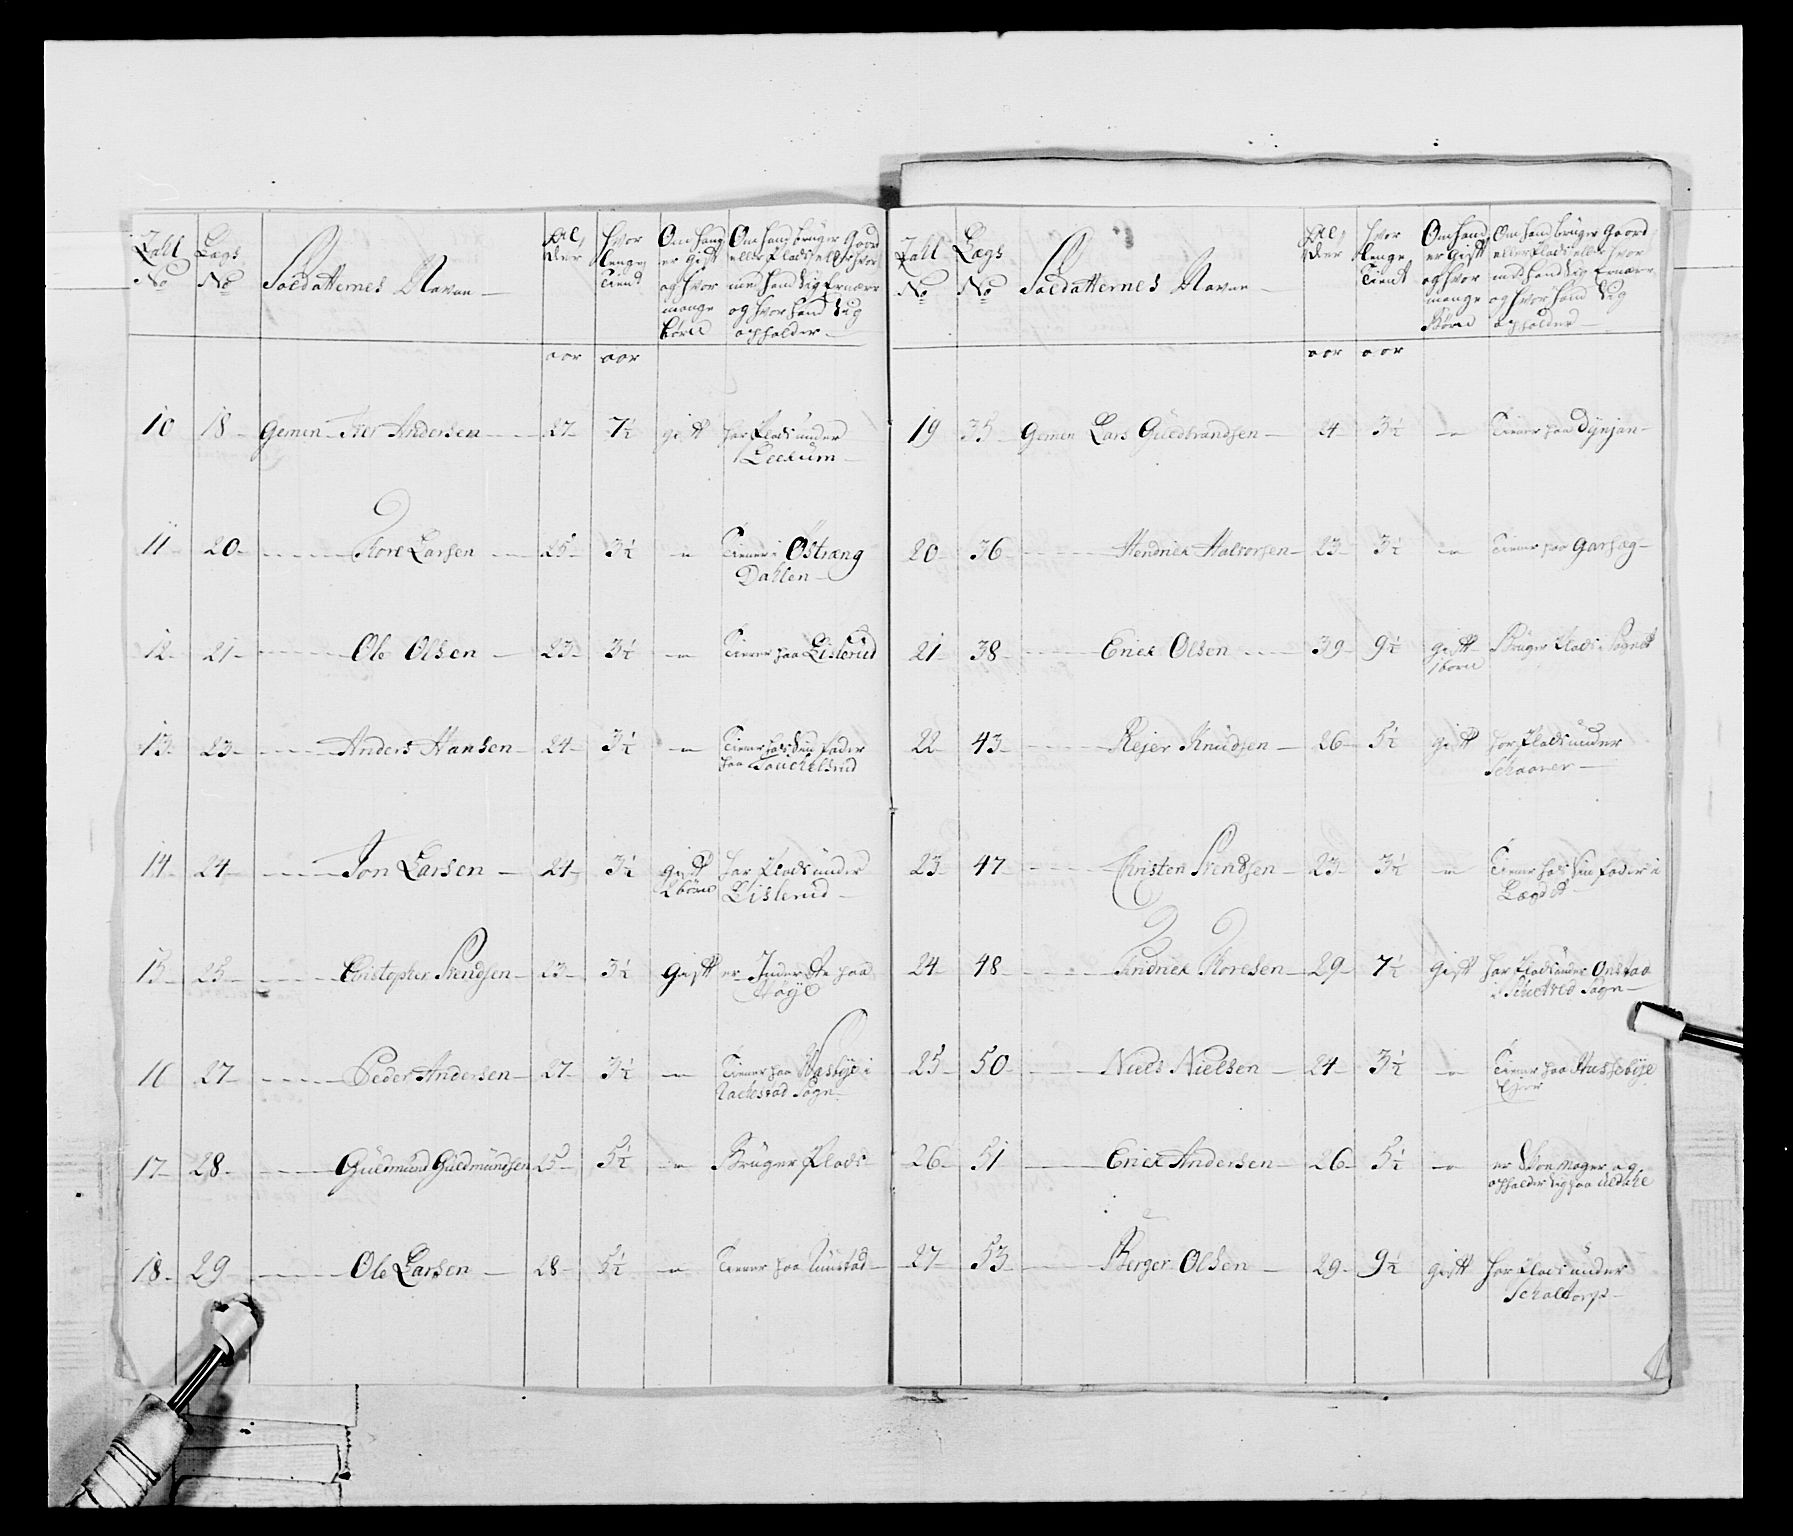 Zahl No | Lægs No | Soldatternes Navne | Al, der | Hvor lenge Tient | Om hand er gift og hvor mange börn | Om hand brüger Gaard eller Plads eller hvor med hand sig Ernærer og hvor hand sig opholder
aar | aar
10 | 18 | Gemen Iver Andersen | 27 | 7½ | gift | har Plads under
Leerum
11 | 20 | Tore Larsen | 25 | 3½ | " | Tiener i Østræng
Dahlen
12 | 21 | Ole Olsen | 23 | 3½ | " | Tiener paa Lislerud
13 | 23 | Anders Hansen | 24 | 3½ | " | Tiener hos sin fader
paa
14 | 24 | Jon Larsen | 24 | 3½ | gift 2 börn | har Plads under
Lislerud
15 | 25 | Christopher Svendsen | 23 | 3½ | Gift | er Inderste paa
Høye
16 | 27 | Peder Andersen | 27 | 3½ | " | Tiener paa Wasbye i
Rachestad Sogn
17 | 28 | Guldmund Guldmundsen | 25 | 5½ | " | Brüger Plads
18 | 29 | Ole Larsen | 28 | 5½ | " | Tiener paa
Zahl No | Lægs No | Soldatternes Navne | Al, der | Hvor lenge Tient | Om hand er Gift og hvor mange Börn | Om hand brüger Gaard eller Plads eller hvor med hand sig Ernærer og hvor hand sig opholder
aar | aar
19 | 35 | Gemen Lars Guldbrandsen | 24 | 3½ | " | Tiener paa Dynjan
20 | 36 | Hendrick Halvorsen | 23 | 3½ | " | Tiener paa Garseg
21 | 38 | Erick Olsen | 39 | 9½ | gift 1 barn | Brüger Plads i Sognet
22 | 43 | Rejer Knudsen | 26 | 5½ | gift | har Plads under
Schaaner
23 | 47 | Christen Svendsen | 23 | 3½ | " | Tiener hos sin fader i
Lægdet
24 | 48 | Hindrick Thoresen | 29 | 7½ | Gift | har Plads under Onstad
i Sogn
25 | 50 | Niels Nielsen | 24 | 3½ | " | Tiener paa Hussebye
26 | 51 | Erick Andersen | 26 | 5½ | " | er Skoemager og
opholder sig paa
27 | 53 | Berger Olsen | 29 | 9½ | gift | har Plads under
Schaltorp